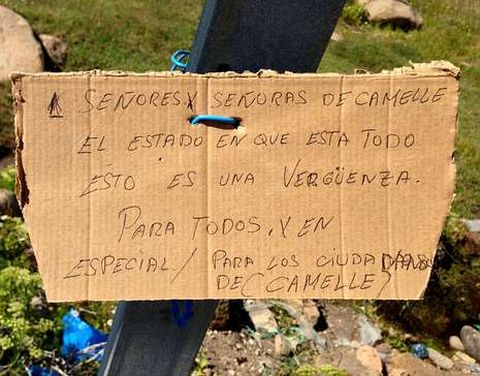 A SEÑORES Y SEÑORAS DE CAMELLE
EL ESTADO EN QUE ESTA TODO
ESTO ES UNA VERGÜENZA.
PARA TODOS, Y EN
ESPECIAL / PARA LOS CIUDADANOS
DE (CAMELLE)